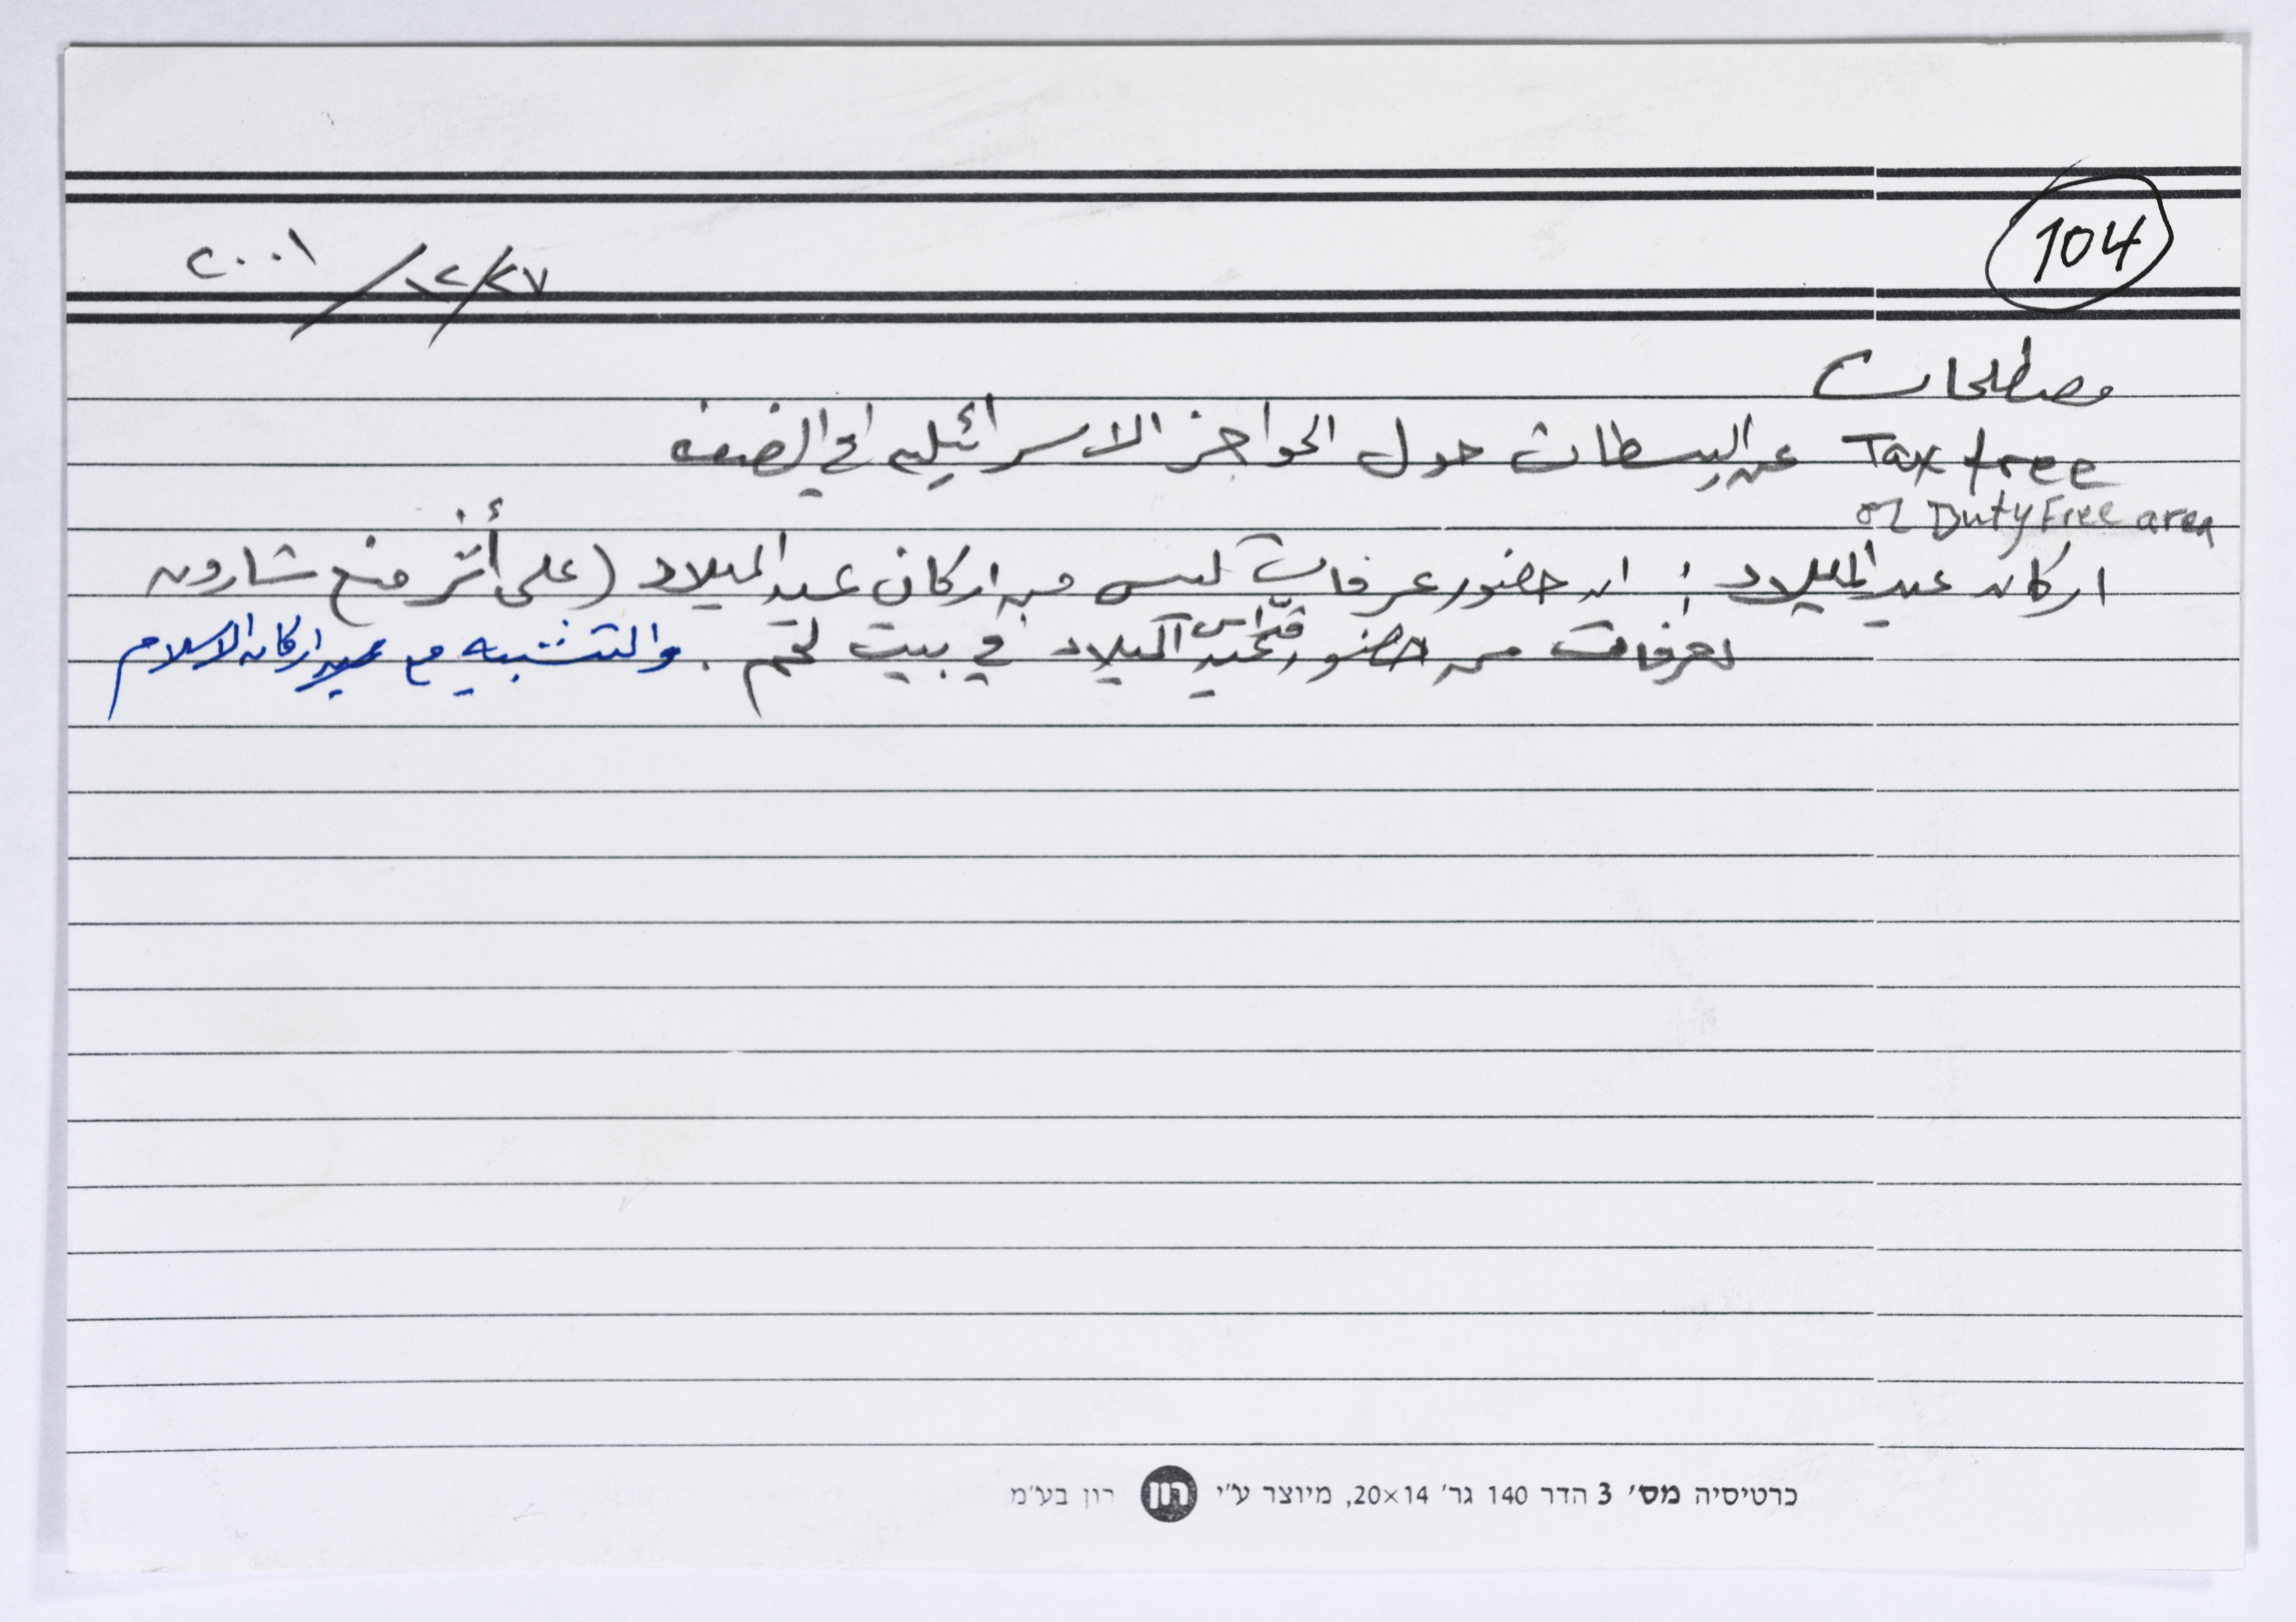 104
٢٧/١٢/٢٠٠١
مصطلحات
Tax free عن البسطات حول الحواجز الاسرائيلية في الضفه
or Duty Free area
اركان عيد الميلاد : ان حضور عرفات ليس من اركان عيد الميلاد (على أثر منع شارون
لعرفات من حضور قدّاس عيد الميلاد في بيت لحم . والتشبيه مع اركان الاسلام
כרטיסיה מס׳ 3 הדר 140 גר׳ 20×14, מיוצר ע״י רון רון בע״מ